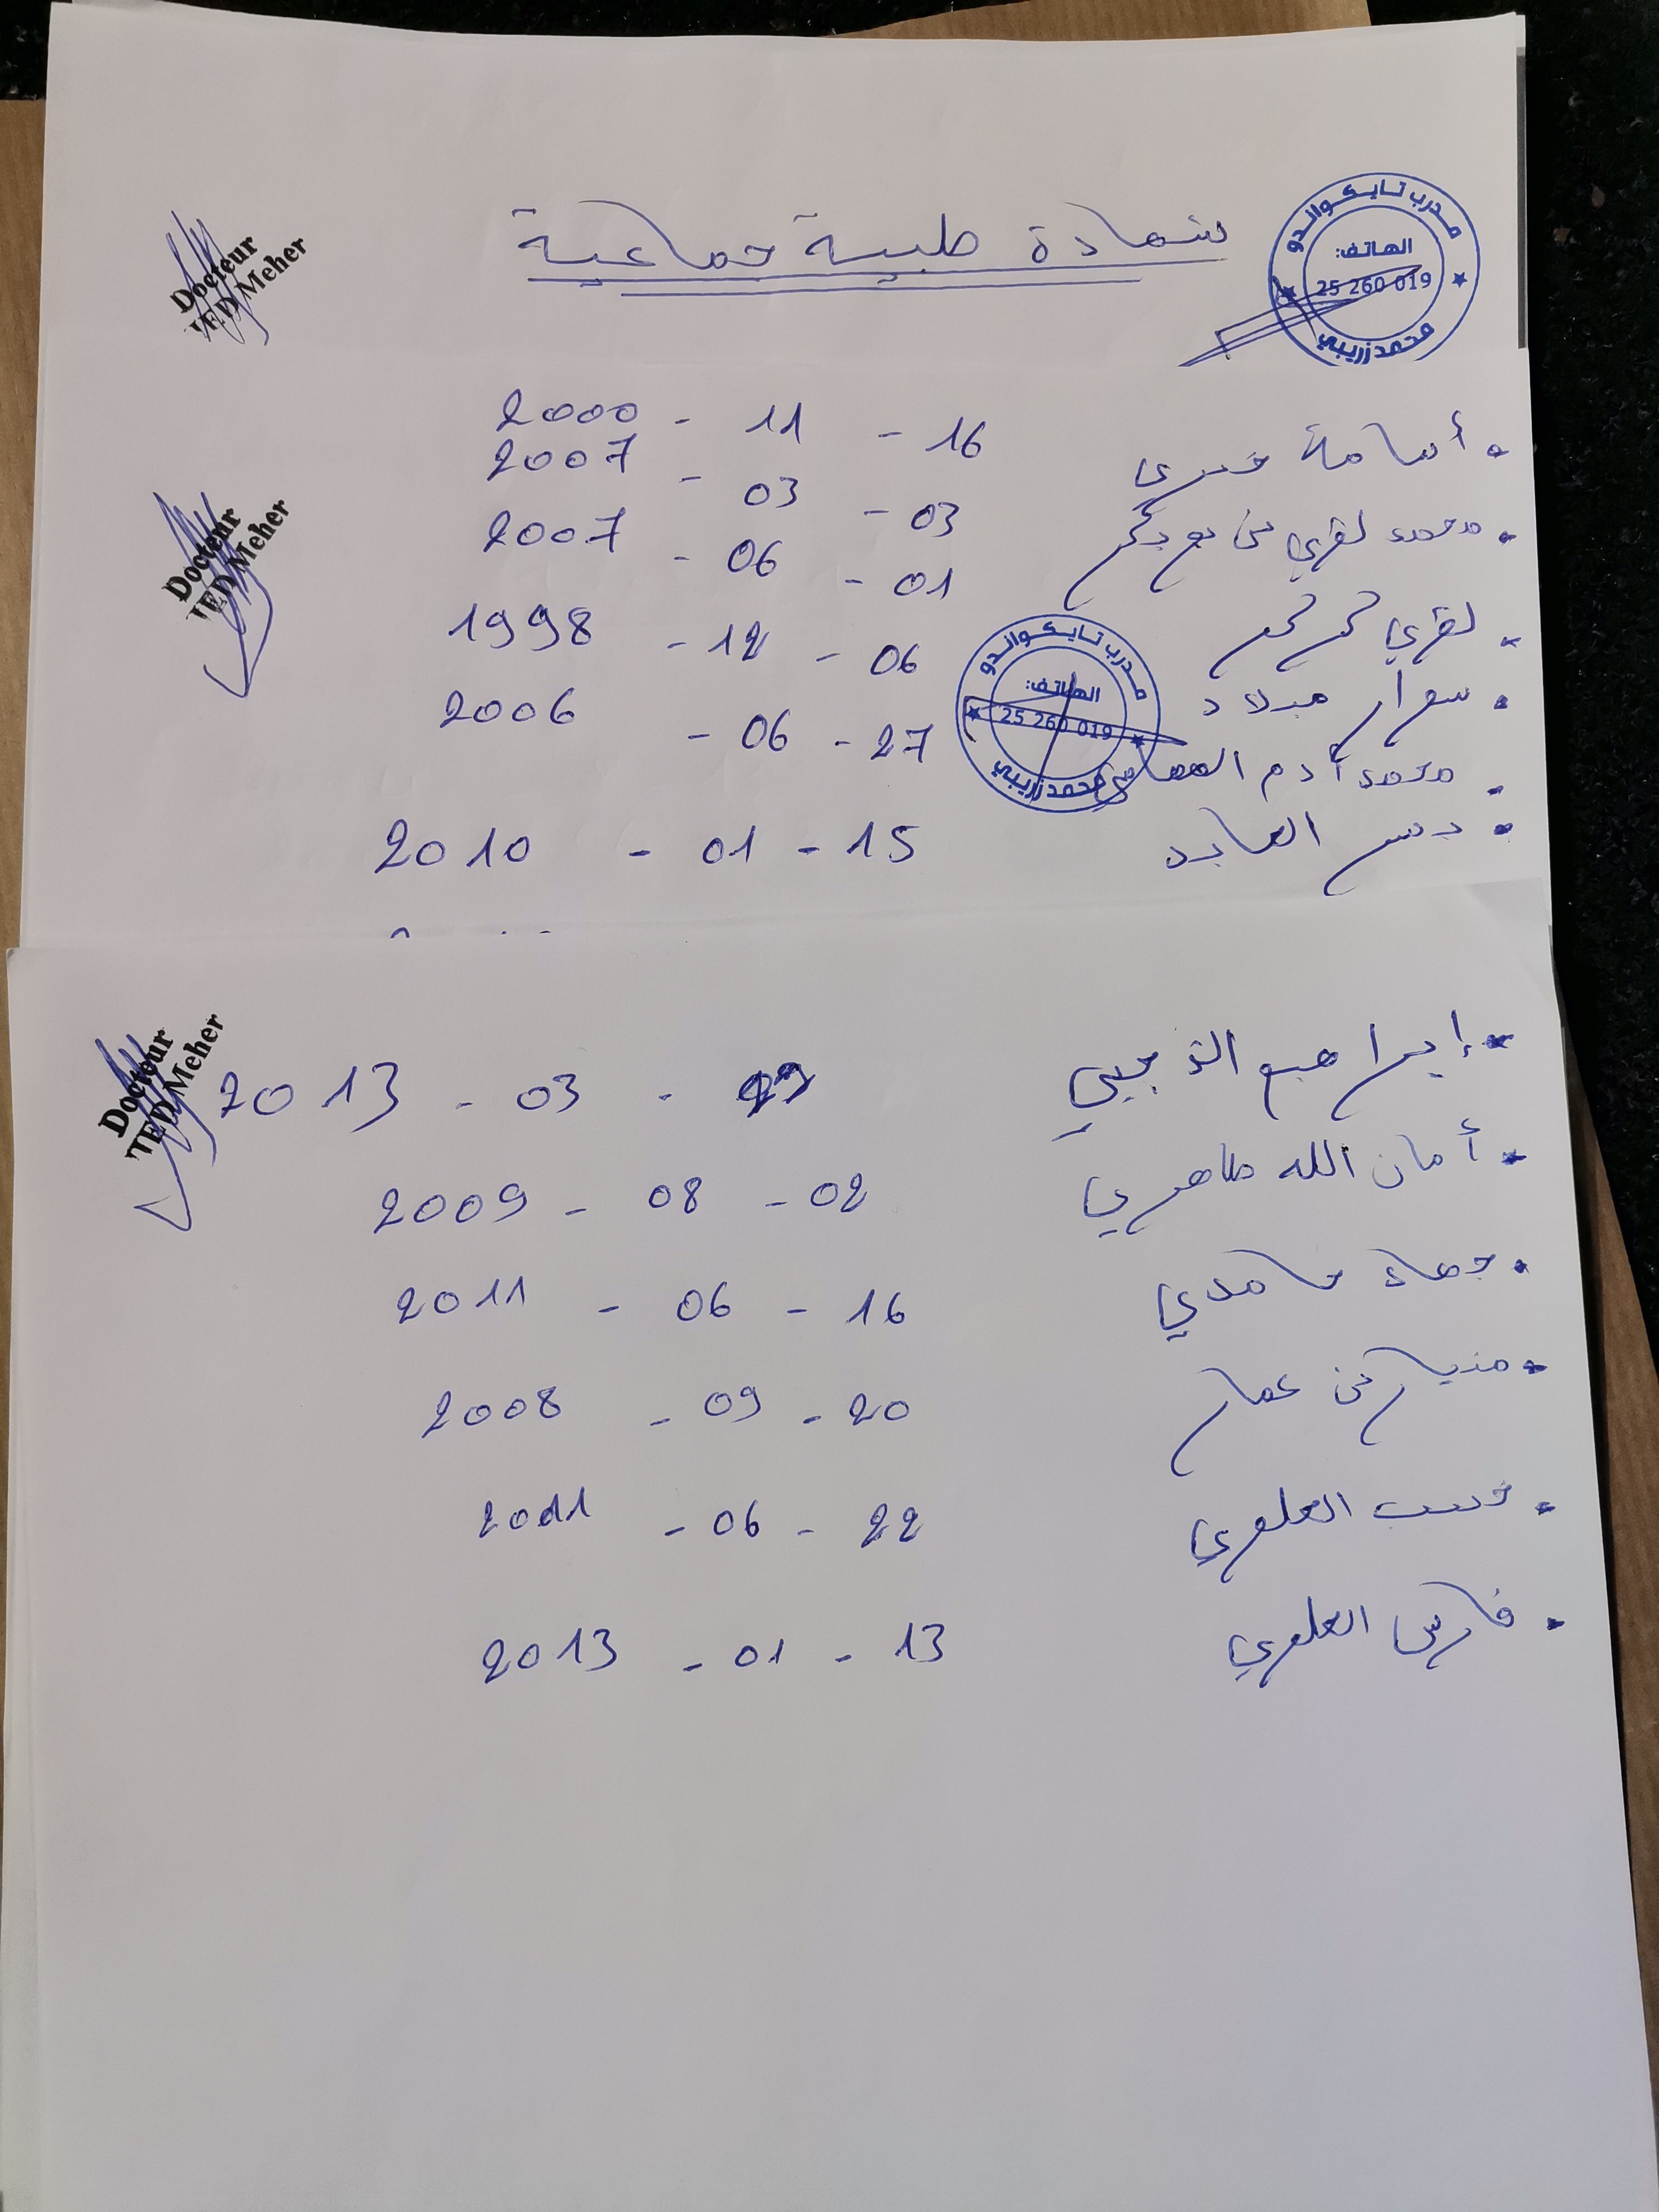 شهادة طبية جماعية
مدرب تايكواندو
الهاتف:
25 260 019
محمد زريبي
Docteur
Meher
أسامة 16 - 11 - 2000
Docteur
Meher
محمد لقري بن بوبكر 03 - 03 - 2007
لقري 01 - 06 - 2007
سوار ميلاد 06 - 12 - 1998
مدرب تايكواندو
الهاتف:
25 260 019
محمد زريبي
محمد آدم 27 - 06 - 2006
العابد 15 - 01 - 2010
Docteur
Meher
إبراهيم 03 - 2013
أمان الله طاهري 02 - 08 - 2009
جهاد حامدي 16 - 06 - 2011
بن عمار 20 - 09 - 2008
العلوي 22 - 06 - 2011
فارس العلوي 13 - 01 - 2013